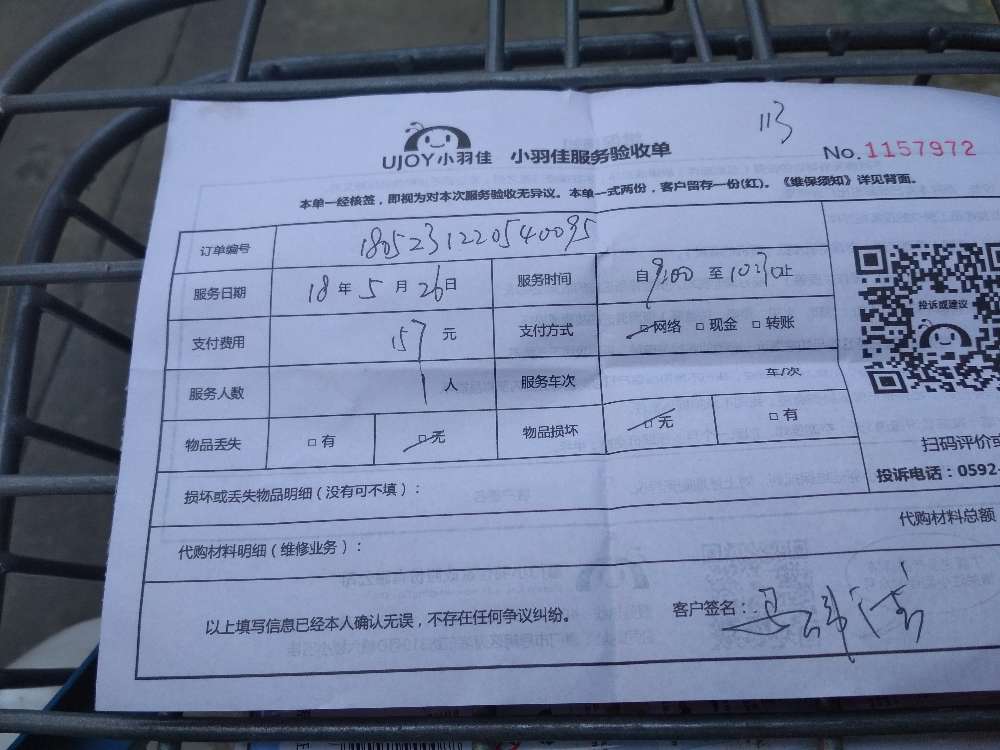 113
UJOY小羽佳 小羽佳服务验收单 No.1157972
本单一经核签，即视为对本次服务验收无异议。本单一式两份，客户留存一份(红)。《维保须知》详见背面。
订单编号 1805231220540095
服务日期 18年5月26日 服务时间 自9:00至10:30止
支付费用 157元 支付方式 □网络 □现金 □转账
服务人数 1人 服务车次 车/次
物品丢失 □有 □无 物品损坏 □无 □有
投诉或建议
扫码评价或
投诉电话：0592-
损坏或丢失物品明细（没有可不填）：
代购材料明细（维修业务）： 代购材料总额
以上填写信息已经本人确认无误，不存在任何争议纠纷。 客户签名：